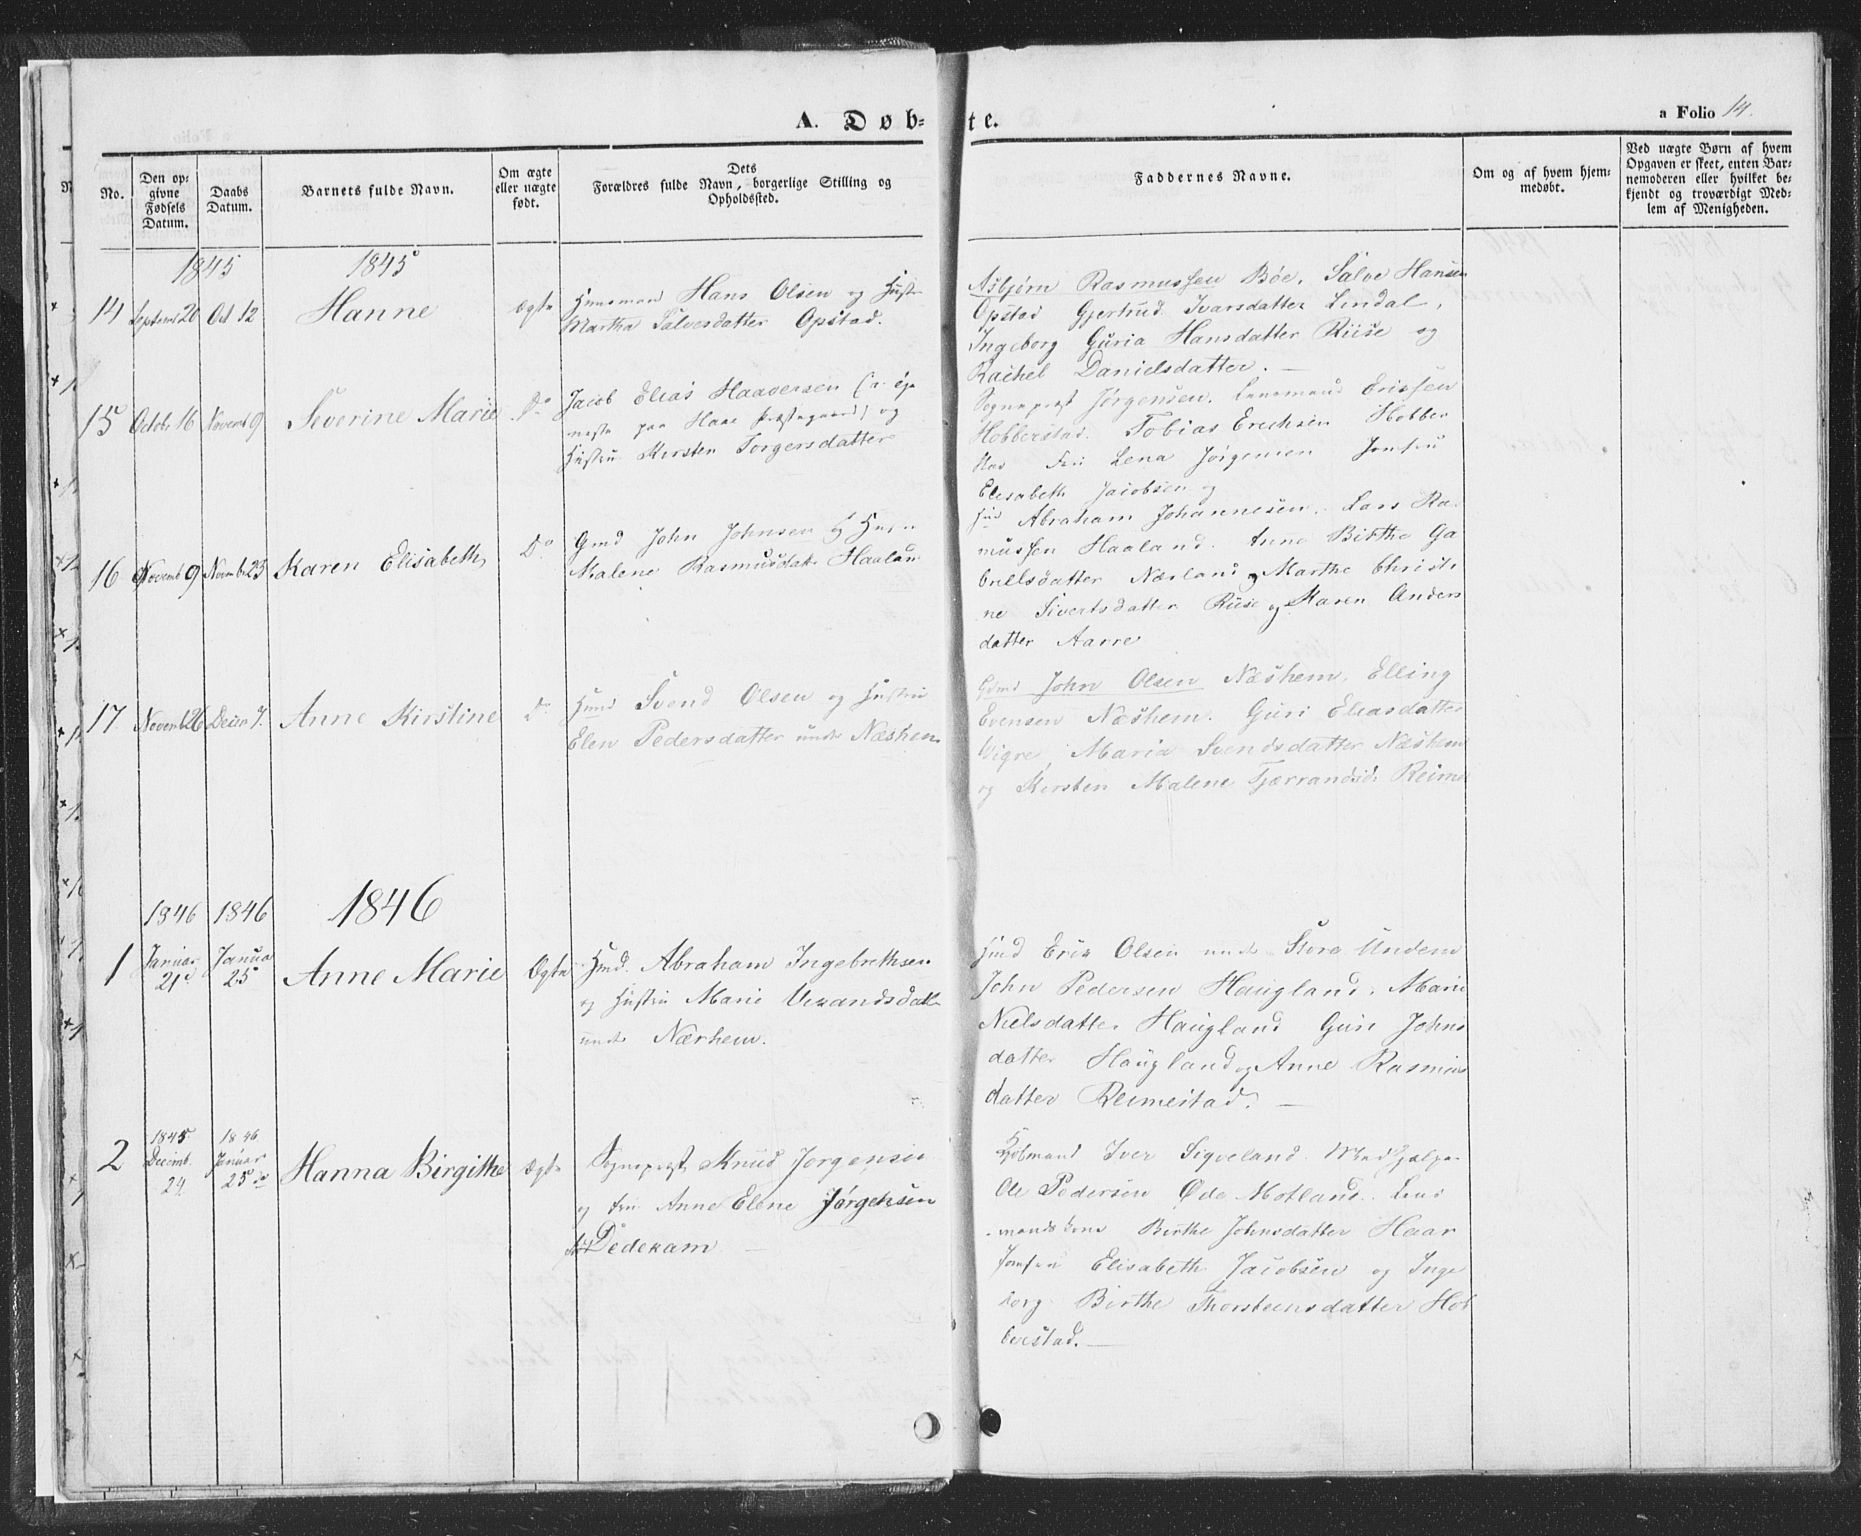 A. Døb-te.
a Folio 14.
No.
Den opgivne Fødsels Datum.
Daabs Datum.
Barnets fulde Navn.
Om ægte eller uægte født.
Dets Forældres fulde Navn, borgerlige Stilling og Opholdssted.
Faddernes Navne.
Om og af hvem hjemmedøbt.
Ved uægte Børn af hvem Opgaven er skeet, enten Barnemoderen eller hvilket bekjendt og troværdigt Medlem af Menigheden.
1845
1845
14 Septemb 20 Oct 12 Hanne Ægte
Huusmand Hans Olsen og Hustr
Martha Salvesdatter Opstad.
Asbjørn Rasmussen Bøe, Salve Hansen
Opstad Gjertrud Ivarsdatter Lindal,
Ingeborg Guria Hansdatter Riise og
Rachel Danielsdatter. —
15 Octob 16 Novemb 9 Severine Marie Do
Jacob Elias Haaversen
paa Haae Præstegaard) og
Hustru Kirsten Torgersdatter
Sognepræst Jørgensen, Lensmand Ericksen
Hobberstad. Tobias Erichsen Hobber
stad Lena Jørgensen Jomfru
Elisabeth Jacobsen og
16 Novemb 9 Novemb 23 Karen Elisabeth Do
Gmd John Johnsen og Hustr
Malene Rasmusdatt Haalan
Abraham Johannesen. Lars Ra
mussen Haaland. Anne Birthe Ga
brielsdatter Nærland, Marthe Christi
ne Sivertsdatter Riise og Maren Anders
datter Aarre
17. Novemb 26 Decem 7. Anne Kirstine Do
Huusmd Svend Olsen og Hustru
Elen Pedersdatter under Næshem
Gmd John Olsen Næshem, Elling
Evensen Næshem. Guri Eliasdatter
Vigre, Maria Svendsdatter Næshem
og Kirsten Malene Tjærrandsd. Reime
1846 1846 1846
1 Januar 21de Januar 25 Anne Marie Ægte
Hmd. Abraham Ingebrethsen
og Hustru Marie Verandsdatt
under Nærhem.
Hmd Erik Olsen under Store Undem
John Pedersen Haugland. Marie
Nielsdatter Haugland Guri Johns
datter Haugland og Anne Rasmus
datter Reimestad. —
2 1845 Decemb. 29. 1846 Januar 25de Hanna Birgithe Ægte
Sognepræst Knud Jørgensen
og Fru Anne Elene Jørgensen
Dedekam —
Kjøbmand Iver Sigveland.
Pedersen Øde Motland. Lens
mandskone Birthe Johnsdatter Haar
Jomfru Elisabeth Jacobsen og Inge
borg Birthe Thorsteensdatter Hob
berstad. —